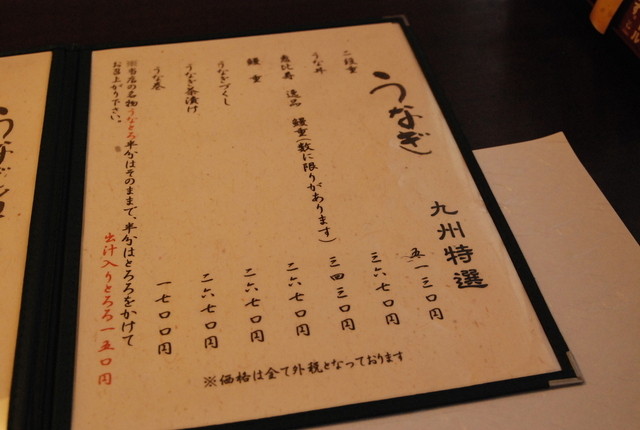 うなぎ 九州特選
二段重 五一三〇円
うな丼 三六七〇円
恵比寿 逸品 鰻重(数に限りがあります) 三四三〇円
鰻重 二六七〇円
うなぎづくし 二六七〇円
うなぎ茶漬け 二六七〇円
うな巻 一七〇〇円
※当店の名物うなとろ半分はそのままで、半分はとろろをかけて
お召上がり下さい。
出汁入りとろろ一五〇円
※価格は全て外税となっております